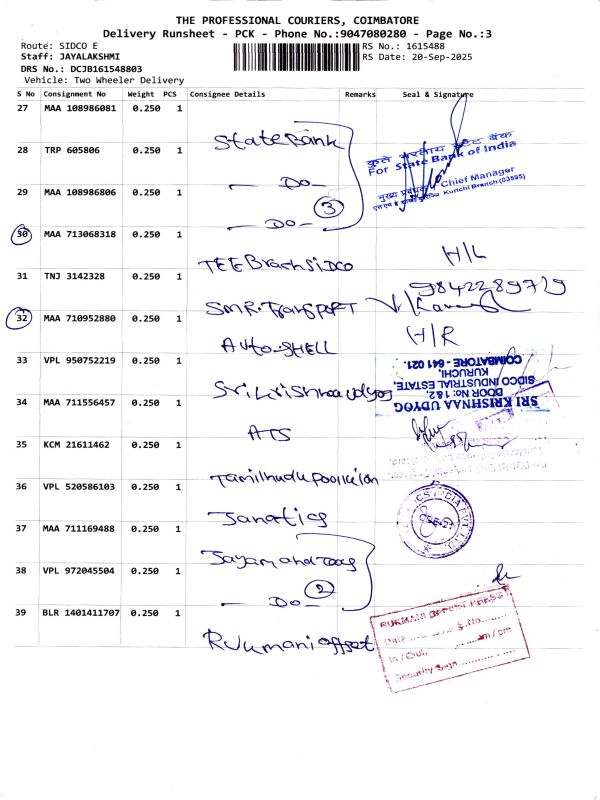 THE PROFESSIONAL COURIERS, COIMBATORE
Delivery Runsheet - PCK - Phone No.:9047080280 - Page No.:3
Route: SIDCO E
RS No.: 1615488
Staff: JAYALAKSHMI
RS Date: 20-Sep-2025
DRS No.: DCJB161548803
Vehicle: Two Wheeler Delivery
S No Consignment No Weight PCS Consignee Details Remarks Seal & Signature
27 MAA 108986081 0.250 1 State Bank
28 TRP 605806 0.250 1 — Do —
29 MAA 108986806 0.250 1 — Do —
3
For State Bank of India
Chief Manager
Kurichi Branch (03595)
30 MAA 713068318 0.250 1 TEE Brach SIDCO H/L
31 TNJ 3142328 0.250 1 SMR. Transport
9842289729
32 MAA 710952880 0.250 1 Auto-SHELL H/R
33 VPL 950752219 0.250 1 Sri Krishnaa Udyog
SRI KRISHNAA UDYOG
DOOR No: 1&2,
SIDCO INDUSTRIAL ESTATE,
KURUCHI,
COIMBATORE - 641 021.
34 MAA 711556457 0.250 1 ATS
35 KCM 21611462 0.250 1 Tamilnadu
36 VPL 520586103 0.250 1 Janatics
37 MAA 711169488 0.250 1 Jayam and
38 VPL 972045504 0.250 1 — Do —
2
39 BLR 1401411707 0.250 1 Rukumani offset
RUKMANI OFFSET PRESS
Date S.No.
In / Out. am / pm
Security Sign